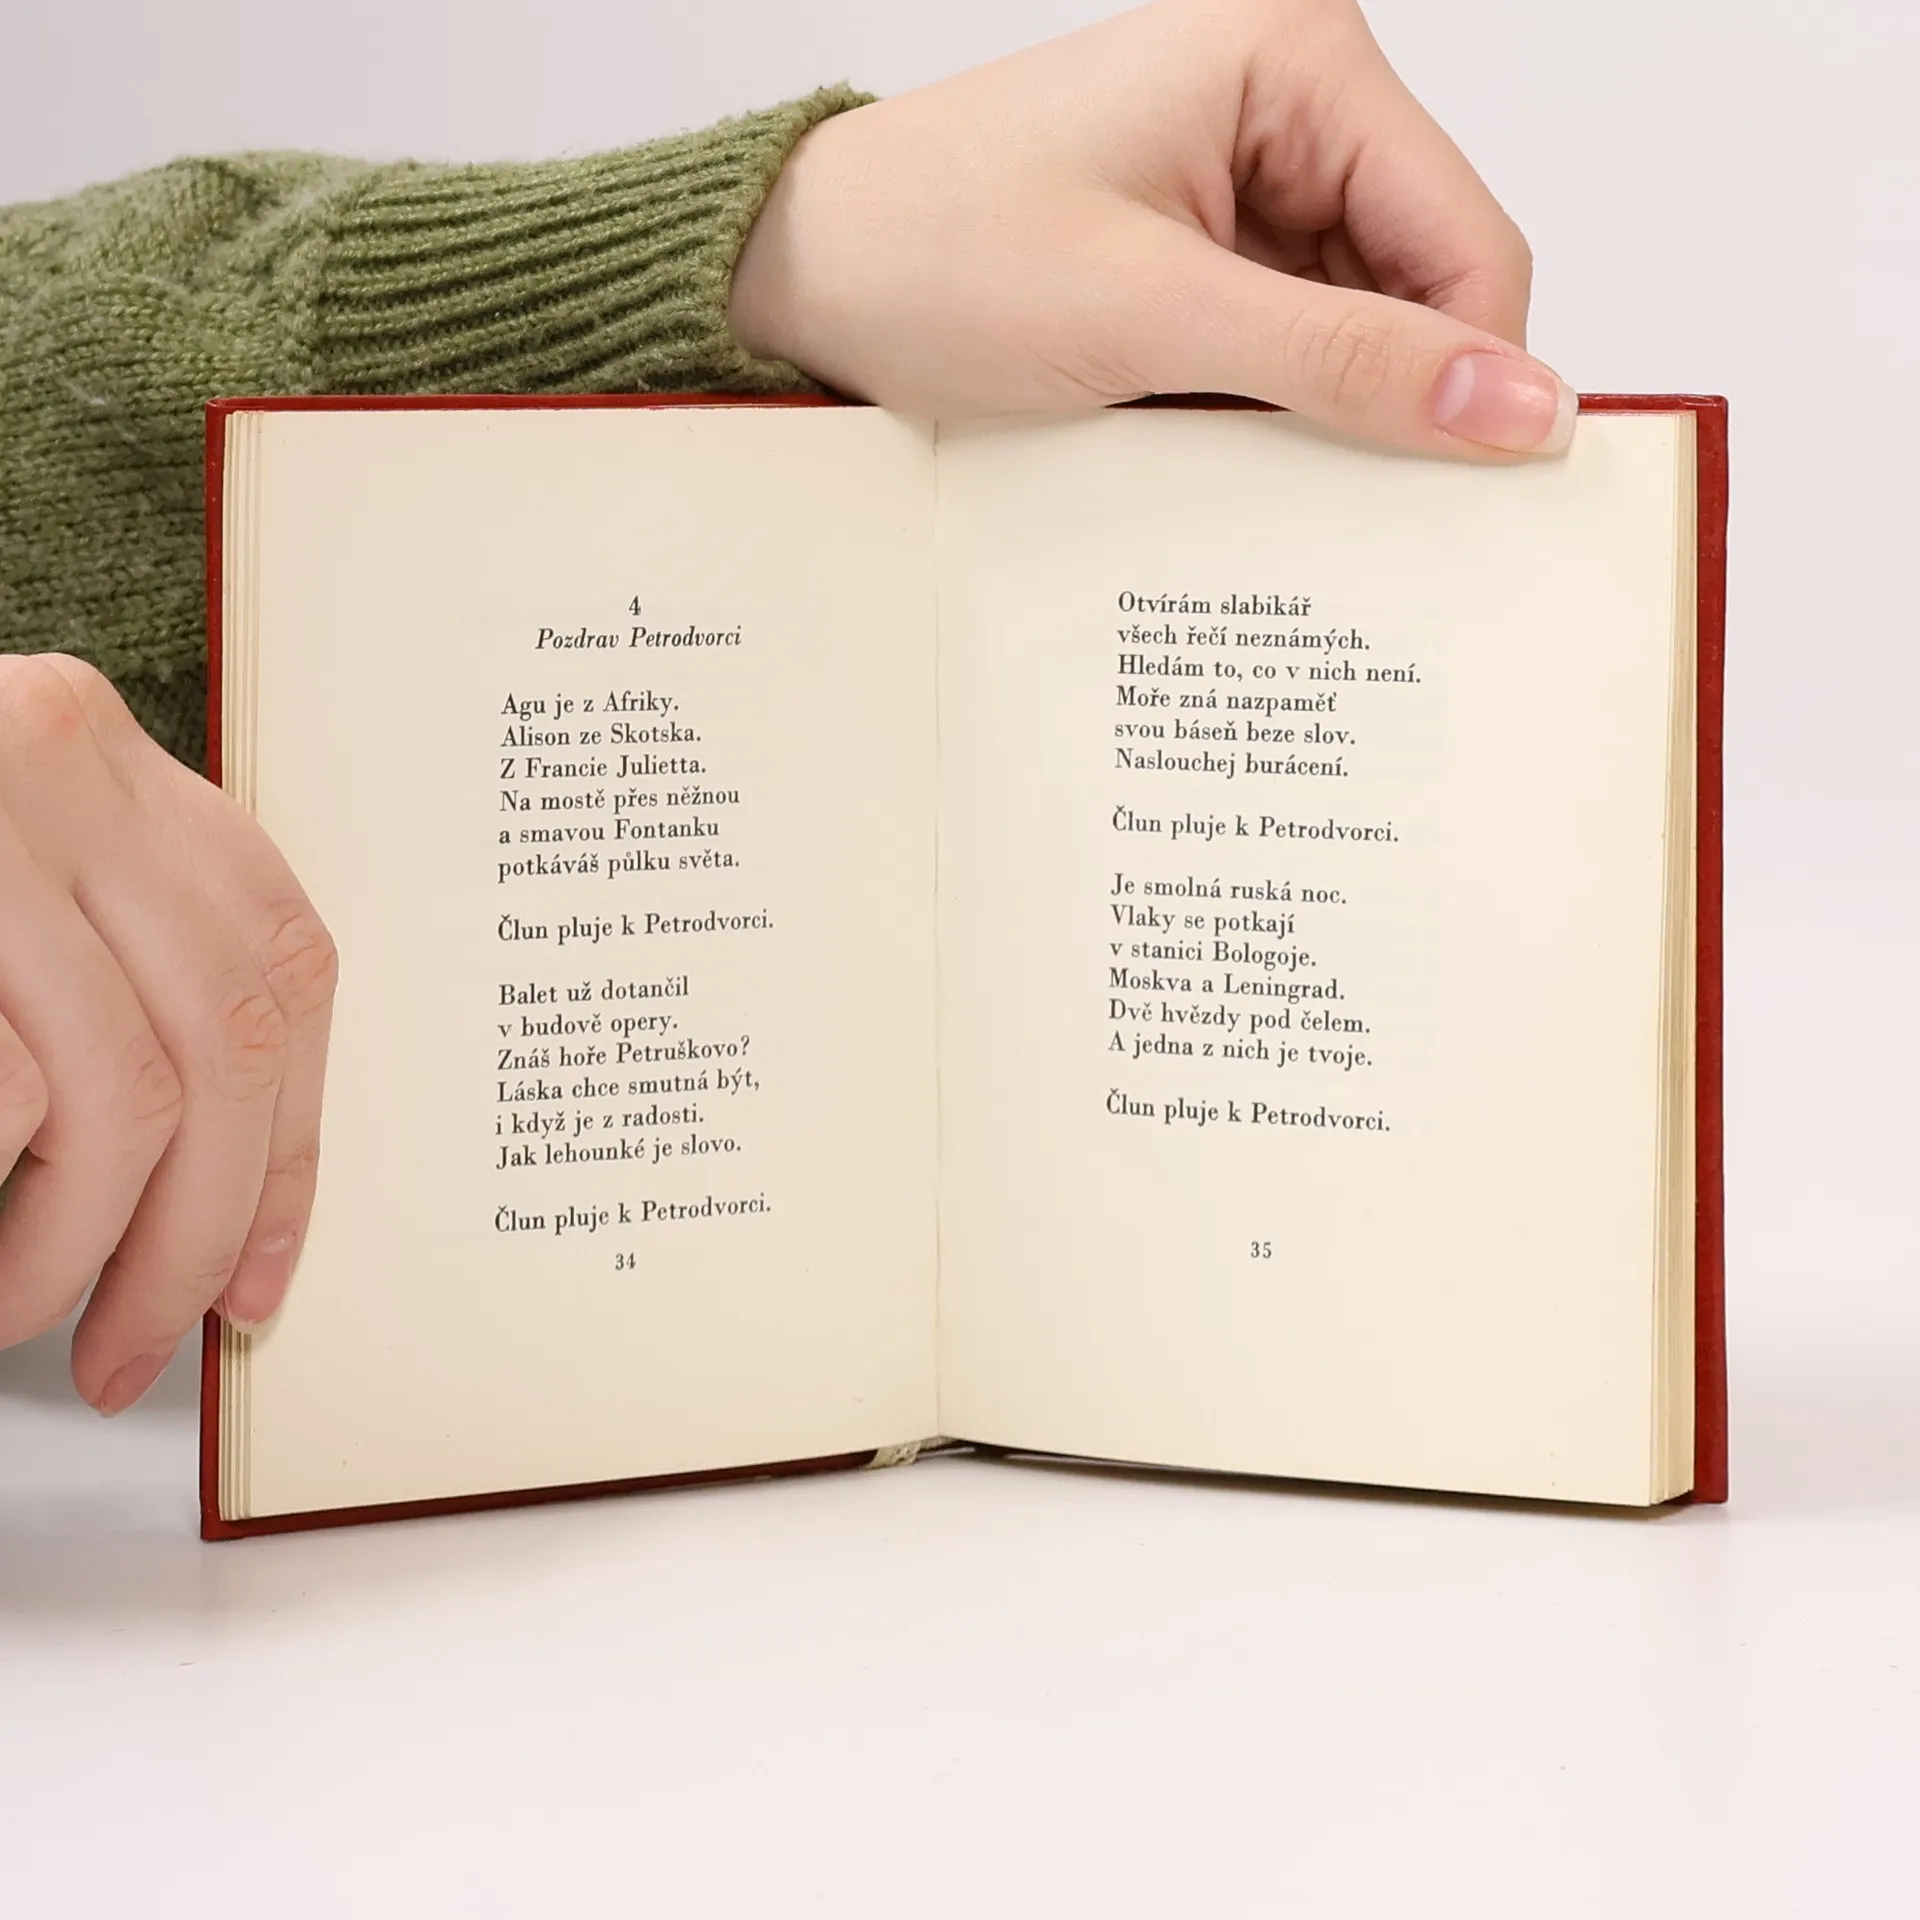 4
Pozdrav Petrodvorci
Agu je z Afriky.
Alison ze Skotska.
Z Francie Julietta.
Na mostě přes něžnou
a smavou Fontanku
potkáváš půlku světa.
Člun pluje k Petrodvorci.
Balet už dotančil
v budově opery.
Znáš hoře Petruškovo?
Láska chce smutná být,
i když je z radosti.
Jak lehounké je slovo.
Člun pluje k Petrodvorci.
34
Otvírám slabikář
všech řečí neznámých.
Hledám to, co v nich není.
Moře zná nazpaměť
svou báseň beze slov.
Naslouchej burácení.
Člun pluje k Petrodvorci.
Je smolná ruská noc.
Vlaky se potkají
v stanici Bologoje.
Moskva a Leningrad.
Dvě hvězdy pod čelem.
A jedna z nich je tvoje.
Člun pluje k Petrodvorci.
35